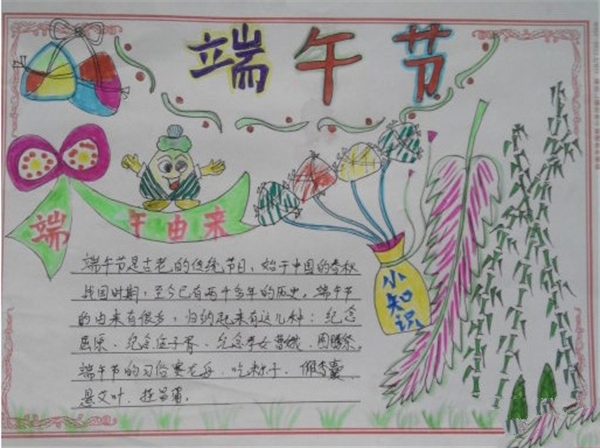 端午节
端午由来
小知识
端午节是古老的传统节日，始于中国的春秋
战国时期，至今已有两千多年的历史。端午节
的由来有很多，归纳起来有这几种：纪念
屈原、纪念伍子胥、纪念孝女曹娥、
端午节的习俗赛龙舟、吃粽子、佩香囊
悬艾叶、挂菖蒲。